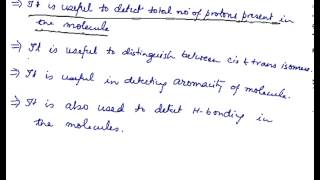 ⇒ It is useful to detect total no: of protons present in
the molecule
⇒ It is useful to distinguish between cis & trans isomers.
⇒ It is useful in detecting aromaity of molecule.
⇒ It is also used to detect H-bonding in
the molecules.